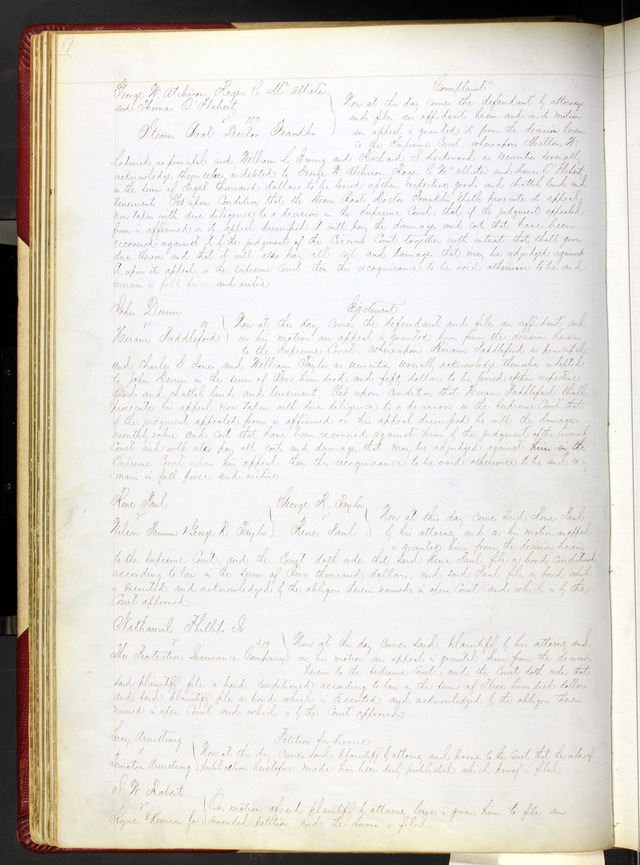 George W Atchison, Roger C. Mc Allister Complaint
and Thomas O Flahert Now at this day come the defendant by attorney
vs 150 and files an affidavit herein and on its motion
Steam Boat Doctor Franklin an appeal is granted it from the decision herein
to the Supreme Court whereupon W
as principal and William L Ewing and Richard J Lockwood as securities severally
acknowledge themselves indebted to George W Atchison Roger C Mc Allister and Thomas O Flahert
in the sum of Eight thousand dollars to be levied of their respective goods and chattels lands and
tenements. Yet upon Condition that the Steam Boat Doctor Franklin shall prosecute its appeal
now taken with due diligence to a decision in the Supreme Court, that if the judgment appealed
from is affirmed or its appeal dismissed it will pay the damage and cost that have been
recovered against it by the judgment of the Circuit Court together with interest that shall grow
due thereon and that it will also pay all cost and damage that may be adjudged against
it upon its appeal in the supreme Court then this recognizance to be void otherwise to be and
remain in full force and virtue
John Dunn Ejectment
vs 19 Now at this day comes the defendant and files an affidavit and
Hiram Paddleford on his motion an appeal is granted him from the decision herein
to the Supreme Court, whereupon Hiram Paddleford as principal
and Charles S Jones and William Taylor as securities severally acknowledge themselves indebted
to John Dunn in the sum of Two hundred and fifty dollars to be levied of their respective
goods and chattels lands and tenement, Yet upon Condition that Hiram Paddleford shall
prosecute his appeal now taken with due diligence to a decision in the Supreme Court that
if the judgment appealed from is affirmed or his appeal dismissed he will the damage
monthly value and cost that have been recovered against him by the judgment of the Circuit
Court and will also pay all cost and damage that may be adjudged against him in the
Supreme Court upon his appeal then this recognizance to be void otherwise to be and re-
main in full force and virtue
Rene Paul George R Taylor
vs vs Now at this day comes said Rene Paul
Wilson Primm & George R Taylor Rene Paul by his attorney and on his motion an appeal
is granted him from the decision herein
to the Supreme Court, and the Court doth order that said Rene Paul file a bond conditioned
according to law in the sum of Two thousand dollars, and said Paul files a bond which
is executed and acknowledged by the obligors therein named in open Court and which is by the
Court approved
Nathaniel Phillips Jr
vs 219 Now at this day comes said plaintiff by his attorney and
The Protection Insurance Company on his motion an appeal is granted him from the decision
herein to the Supreme Court, and the Court doth order that
said plaintiff file a bond conditioned according to law in the sum of Three hundred dollars
and said plaintiff files a bond which is executed and acknowledged by the obligors therein
named in open Court and which is by the Court approved
Lucy Armstrong Petition for divorce
vs Now at this day comes said plaintiff by attorney and proves to the Court that the order of
Armstrong publication heretofore made has been duly published which proof is filed
J. W. Roberts
vs On motion of said plaintiff by attorney leave is given him to file an
amended petition and the same is filed